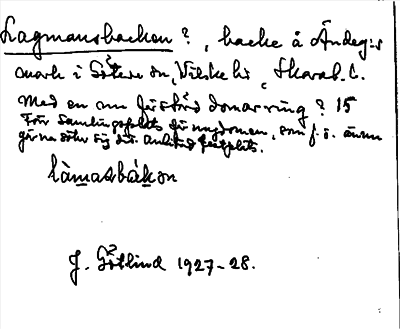 Lagmansbacken?, backe å Ändeg:s
mark i Götene sn, Vilske hd, Skarab. l.
Med en nu förstörd domarring? 15
Förr samlingsplats för ungdomen, som f. ö. ännu
gärna söker sig dit. Anlitad festplats.
làmasbákan
J. Götlind 1927-28.